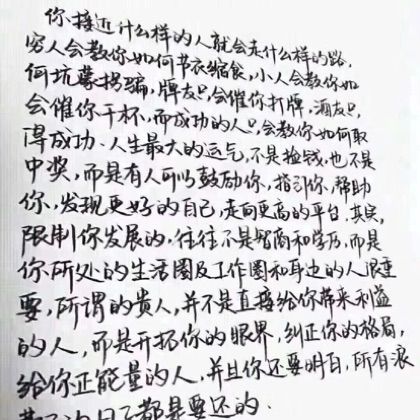 你接近什么样的人就会走什么样的路.
穷人会教你如何节衣缩食,小人会教你如
何坑蒙拐骗,牌友只会催你打牌,酒友只
会催你干杯,而成功的人只会教你如何取
得成功.人生最大的运气,不是捡钱,也不是
中奖,而是有人可以鼓励你,指引你,帮助
你,发现更好的自己,走向更高的平台.其实,
限制你发展的,往往不是智商和学历,而是
你所处的生活圈及工作圈和身边的人很重
要,所谓的贵人,并不是直接给你带来利益
的人,而是开拓你的眼界,纠正你的格局,
给你正能量的人,并且你还要明白,所有浪
日子都是要还的.